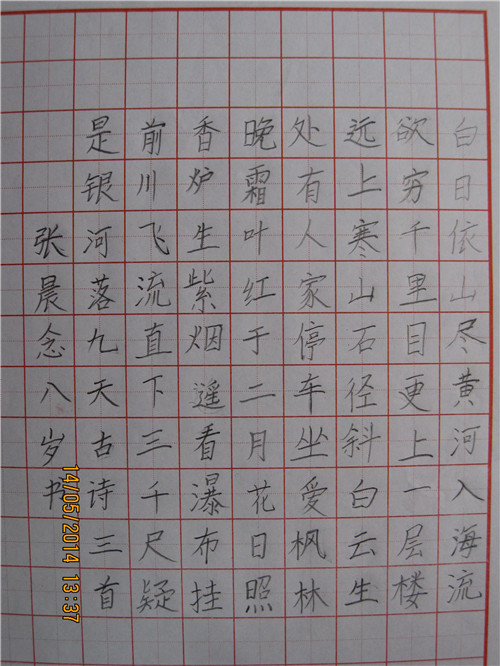 白日依山尽黄河入海流
欲穷千里目更上一层楼
远上寒山石径斜白云生
处有人家停车坐爱枫林
晚霜叶红于二月花日照
香炉生紫烟遥看瀑布挂
前川飞流直下三千尺疑
是银河落九天古诗三首
张晨念八岁书
14/05/2014 13:37